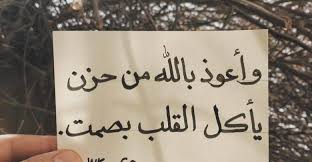 وأعوذ بالله من حزن
يأكل القلب بصمت.